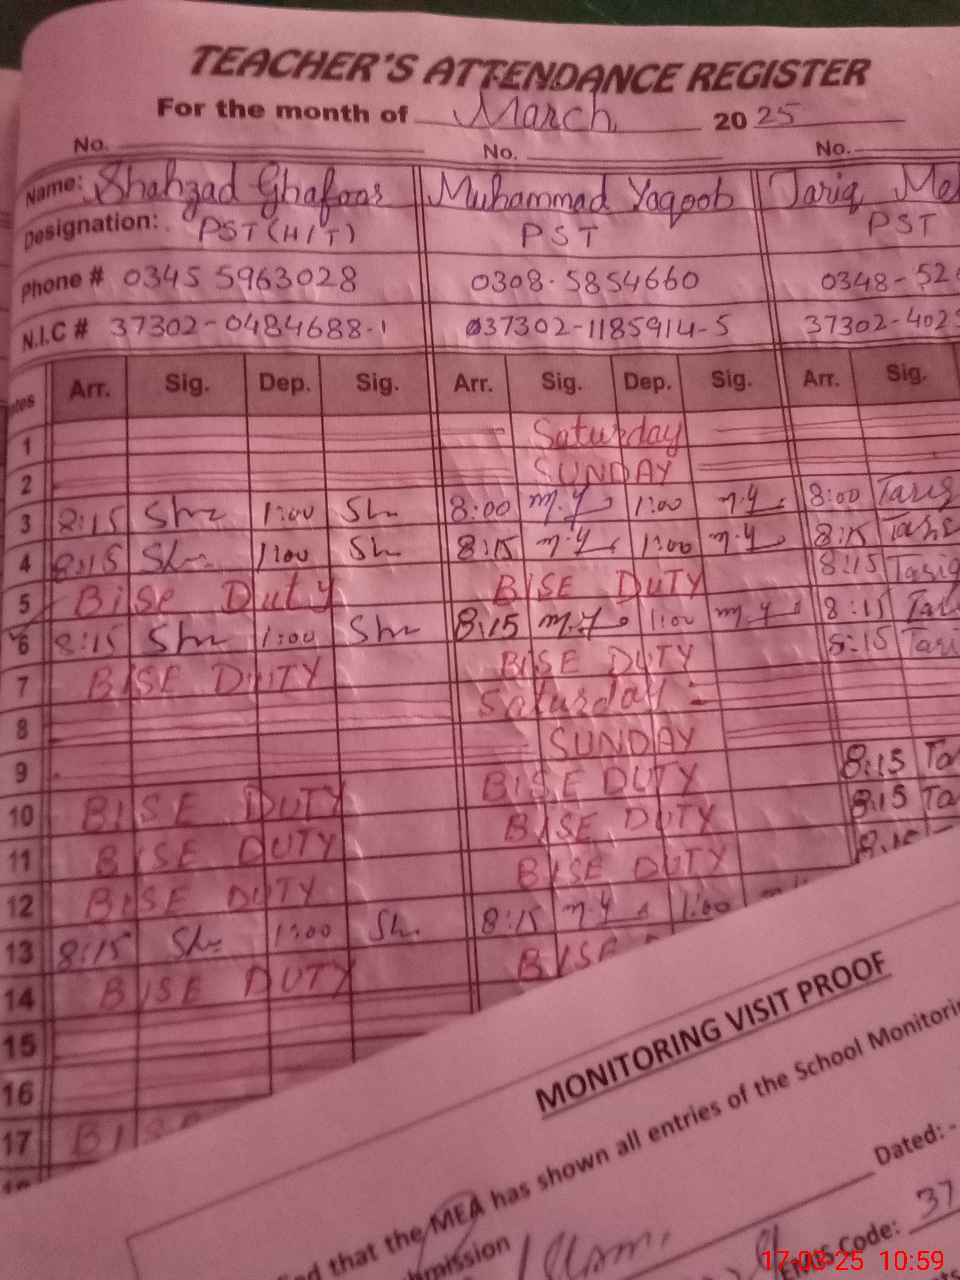 TEACHER'S ATTENDANCE REGISTER
For the month of March 2025
No. No. No.
Name: Shahzad Ghafoor Muhammad Yaqoob Tariq Me
Designation: PST (H/T) PST PST
Phone # 0345 5963028 0308-5854660 0348-52
N.I.C # 37302-0484688-1 37302-1185914-5 37302-402
Arr. Sig. Dep. Sig. Arr. Sig. Dep. Sig. Arr. Sig.
1 Saturday
2 SUNDAY
3 8:15 Sh 1:00 Sh 8:00 M.Y 1:00 M.Y 8:00 Tariq
4 8:15 Sh 1:00 Sh 8:15 M.Y 1:00 M.Y 8:15 Tariq
5 Bise Duty BISE DUTY 8:15 Tariq
6 8:15 Sh 1:00 Sh 8:15 M.Y 1:00 M.Y 8:15 Tar
7 BISE DUTY BISE DUTY 8:15 Tari
8 Saturday
9 SUNDAY
10 BISE DUTY BISE DUTY 8:15 Ta
11 BISE DUTY BISE DUTY 8:15 Ta
12 BISE DUTY BISE DUTY 8:15
13 8:15 Sh 1:00 Sh 8:15 M.Y 1:00
14 BISE DUTY BISE
15
16
17 BISE
MONITORING VISIT PROOF
that the MEA has shown all entries of the School Monitorin
Dated: -
mission
EMIS Code: 37
17-03-25 10:59